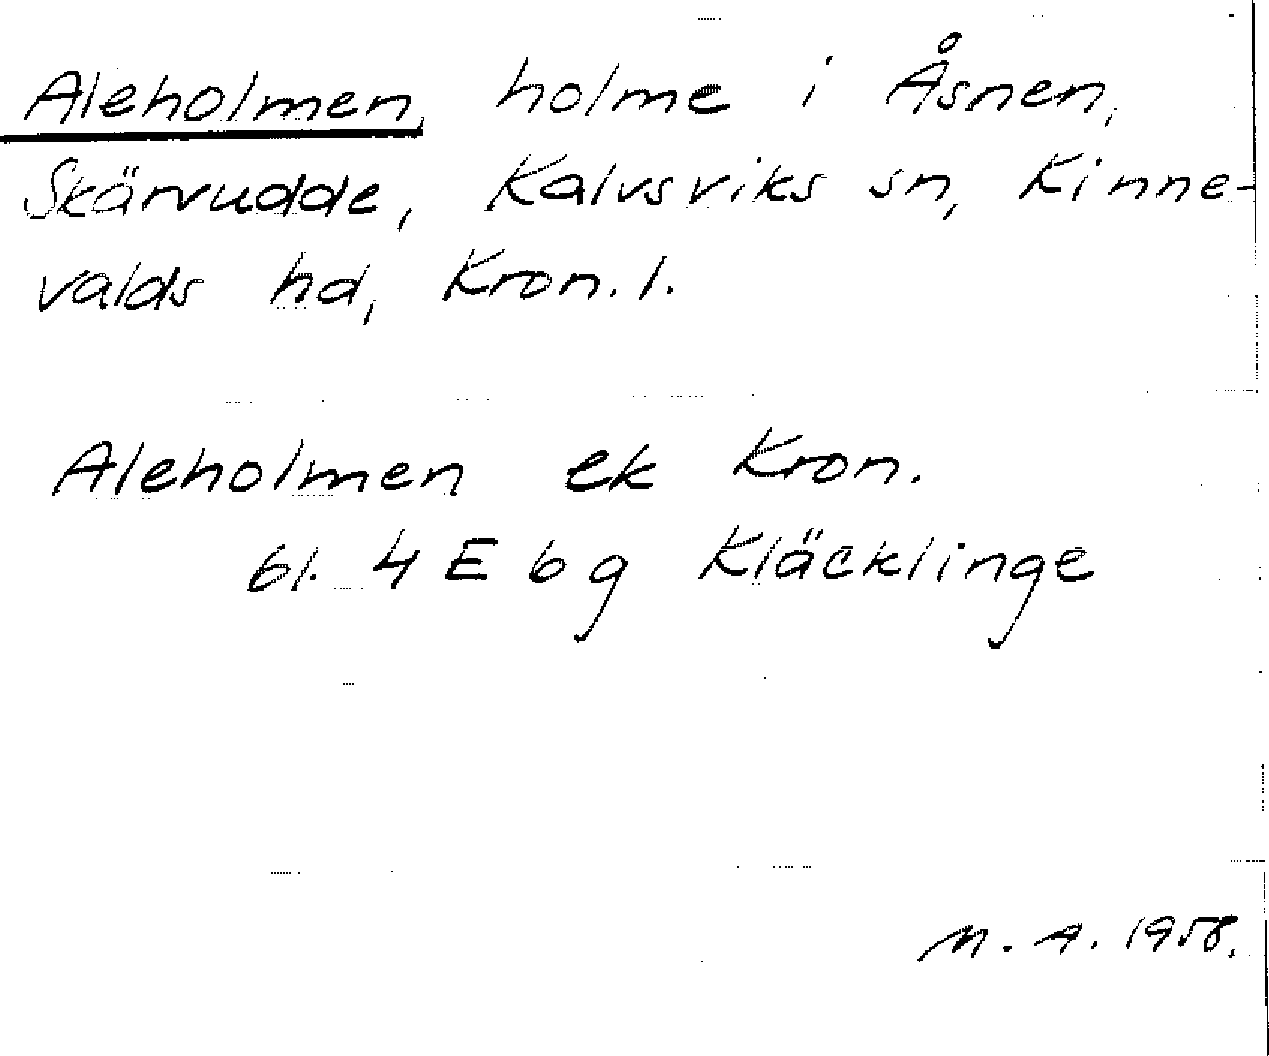 Aleholmen, holme i Åsnen,
Skärvudde, Kalvsviks sn, Kinne-
valds hd, Kron. l.
Aleholmen ek Kron.
bl. 4 E b g Kläcklinge
M. A. 1958.